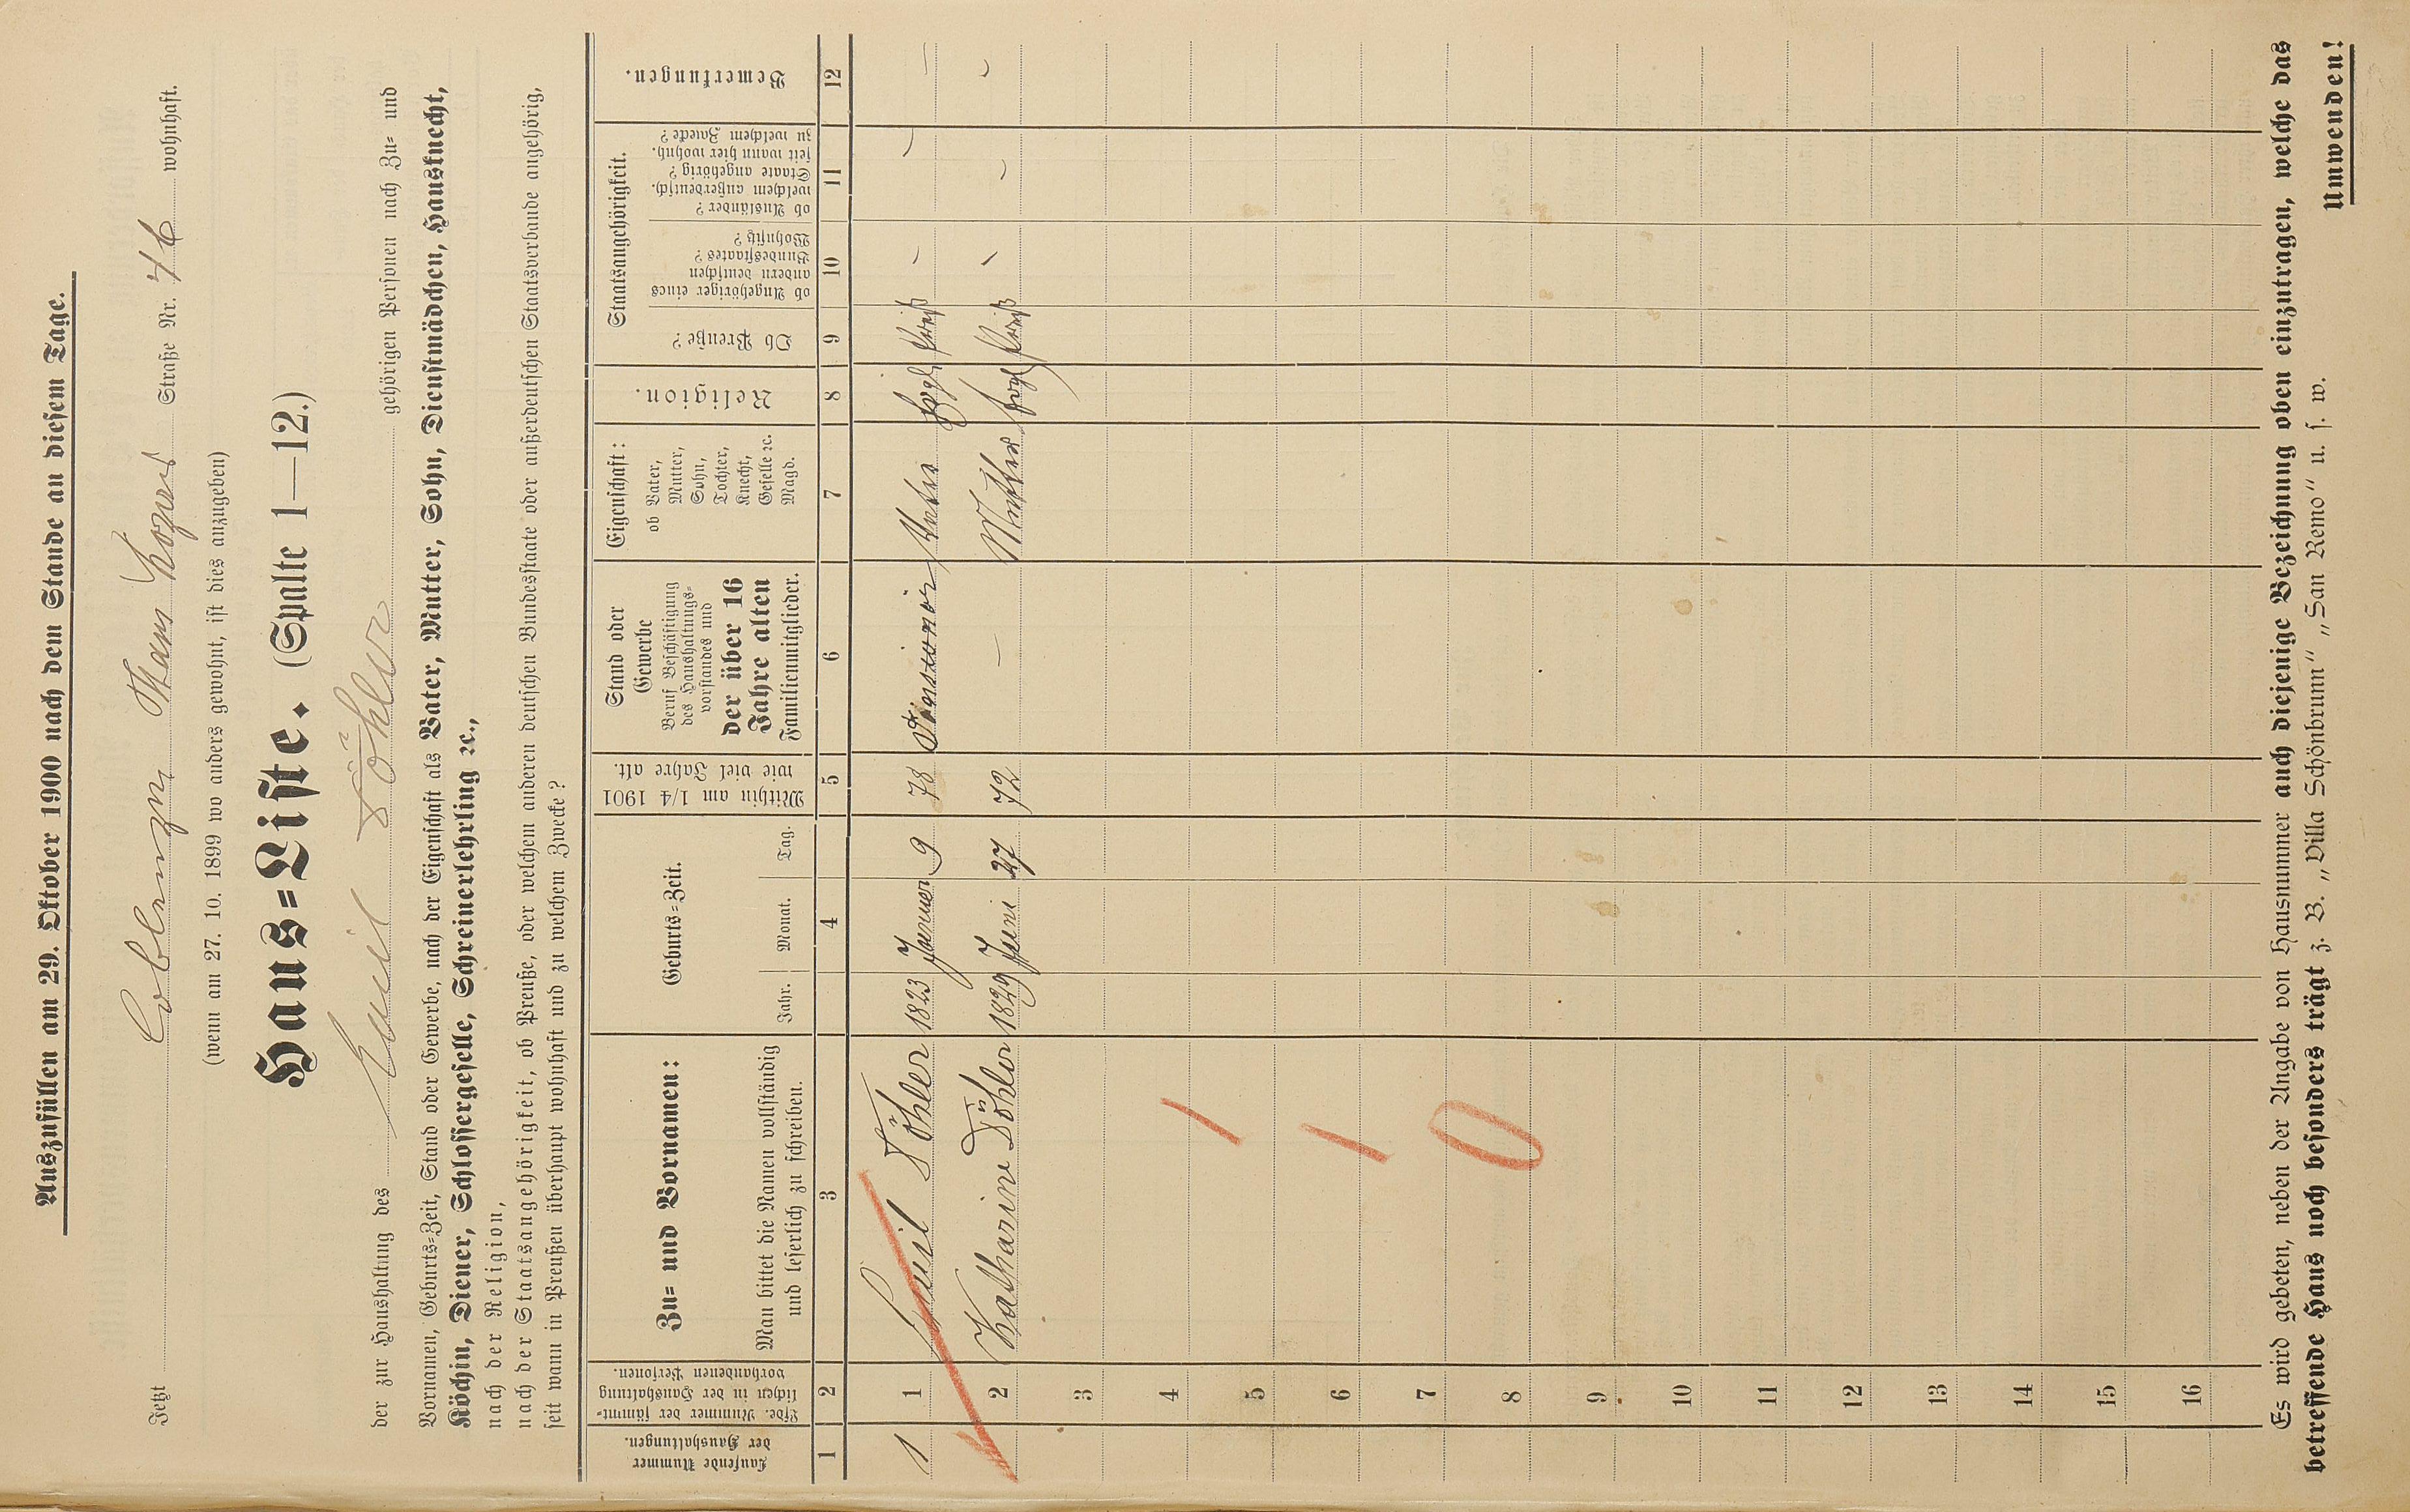 Auszufüllen am 29. Oktober 1900 nach dem Stande an diesem Tage.
Jetzt Coblenzer Straße Nr. 46 wohnhaft.
(wenn am 27. 10. 1899 wo anders gewohnt, ist dies anzugeben)
Haus=Liste. (Spalte 1—12.)
der zur Haushaltung des Emil Döhler gehörigen Personen nach Zu= und
Vornamen, Geburts=Zeit, Stand oder Gewerbe, nach der Eigenschaft als Vater, Mutter, Sohn, Dienstmädchen, Hausknecht,
Köchin, Diener, Schlossergeselle, Schreinerlehrling ꝛc.,
nach der Religion,
nach der Staatsangehörigkeit, ob Preuße, oder welchem anderen deutschen Bundesstaate oder außerdeutschen Staatsverbande angehörig,
seit wann in Preußen überhaupt wohnhaft und zu welchem Zwecke?
Laufende Nummer der Haushaltungen.
Lfde. Nummer der sämmtlichen in der Haushaltung vorhandenen Personen.
Zu= und Vornamen:
Man bittet die Namen vollständig
und leserlich zu schreiben.
Geburts=Zeit.
Jahr. Monat. Tag.
Mithin am 1/4 1901
wie viel Jahre alt.
Stand oder
Gewerbe
Beruf Beschäftigung
des Haushaltungs=
vorstandes und
der über 16
Jahre alten
Familienmitglieder.
Eigenschaft:
ob Vater,
Mutter,
Sohn,
Tochter,
Knecht,
Geselle ꝛc.
Magd.
Religion.
Staatsangehörigkeit.
Ob Preuße?
ob Angehöriger eines
andern deutschen
Bundesstaates?
Wohnsitz?
ob Ausländer?
welchem außerdeutsch.
Staate angehörig?
seit wann hier wohnh.
zu welchem Zwecke?
Bemerkungen.
1 2 3 4 5 6 7 8 9 10 11 12
1 1 Emil Döhler 1823 Januar 9 78 Pensionär Vater Evgl. Preuß
2 Katharine Döhler 1829 Juni 27 72 — Mutter Evgl Preuß
3
4
5
6
7
8
9
10
11
12
13
14
15
16
1
1
0
Es wird gebeten, neben der Angabe von Hausnummer auch diejenige Bezeichnung oben einzutragen, welche das
betreffende Haus noch besonders trägt z. B. „Villa Schönbrunn" „San Remo" u. s. w.
Umwenden!